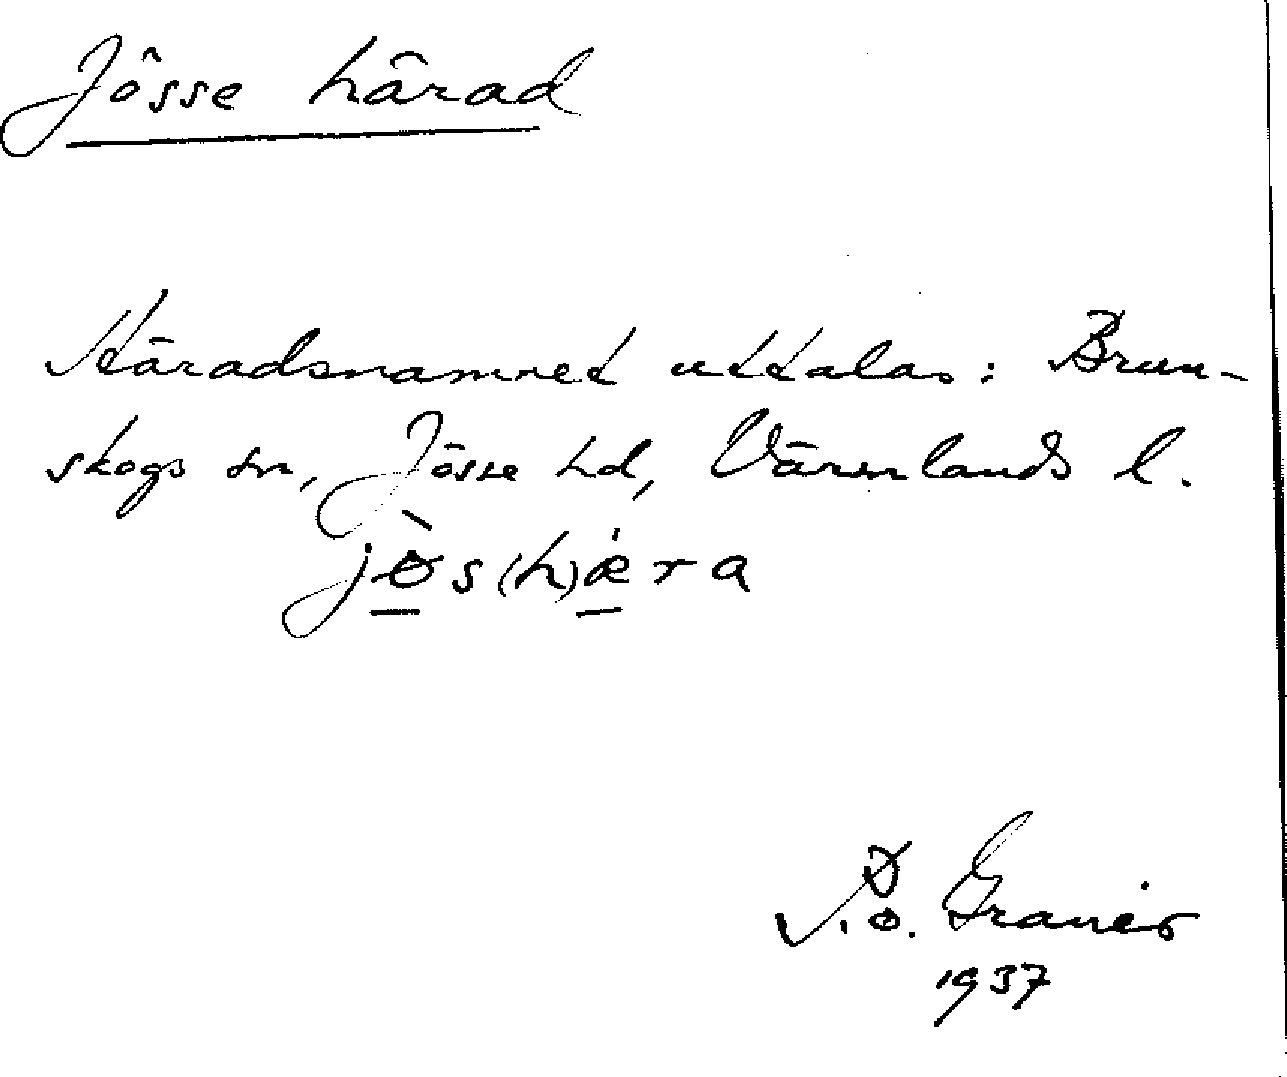 Jösse härad
Häradsnamnet uttalas: Brun-
skogs sn, Jösse hd, Värmlands l.
jø̀s(h)æ̀ra
P.ö. Granér
1937